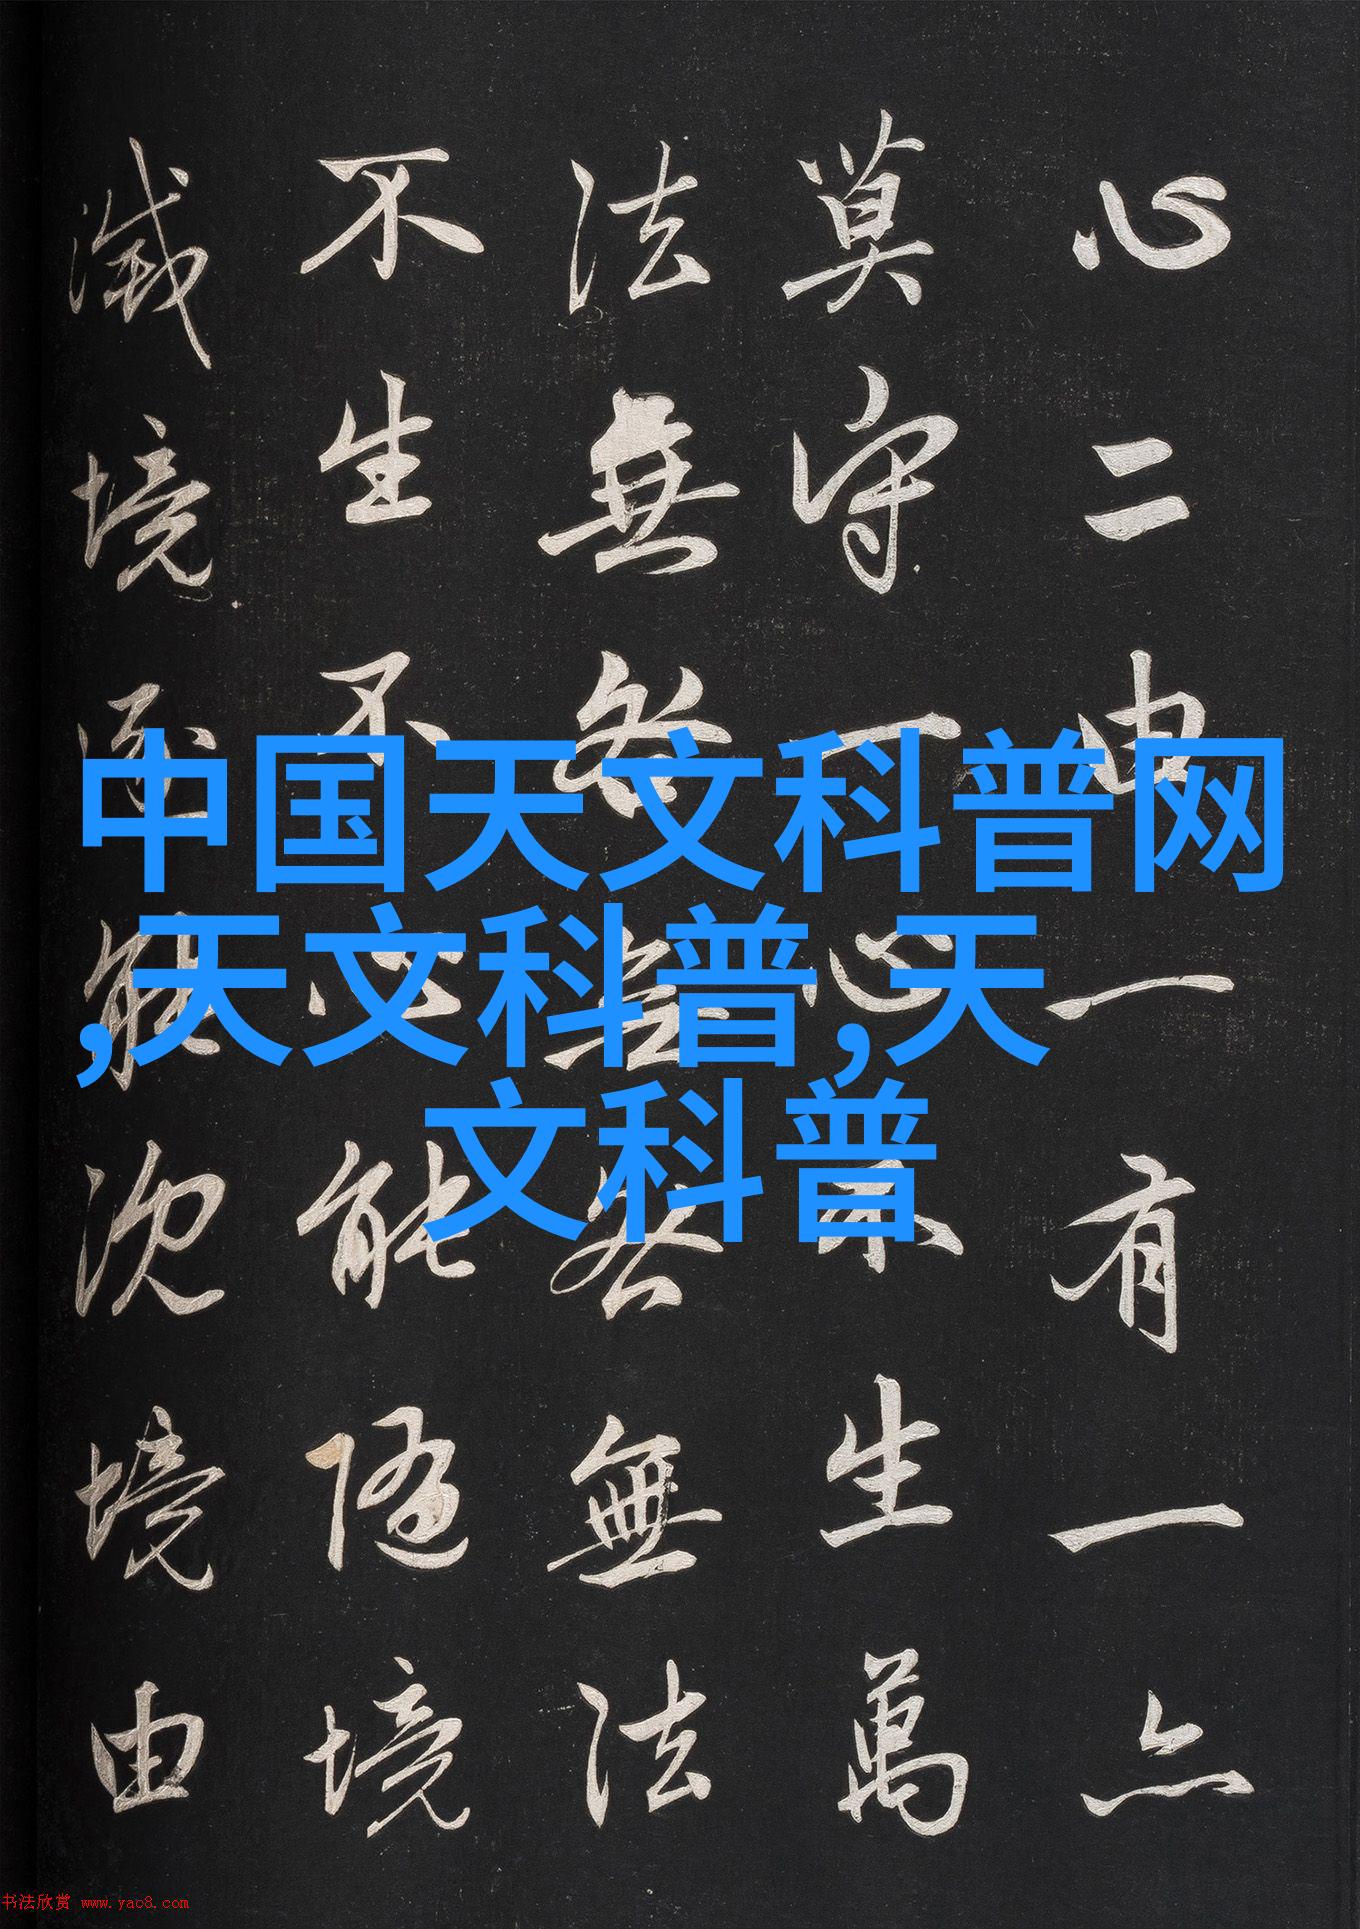 心二由一有一亦
莫守一心不生萬
法無咎無咎無法
不生不心能隨境
滅境逐能沈境由
中国天文科普网
,天文科普,天
文科普
书法欣赏 www.yac8.com